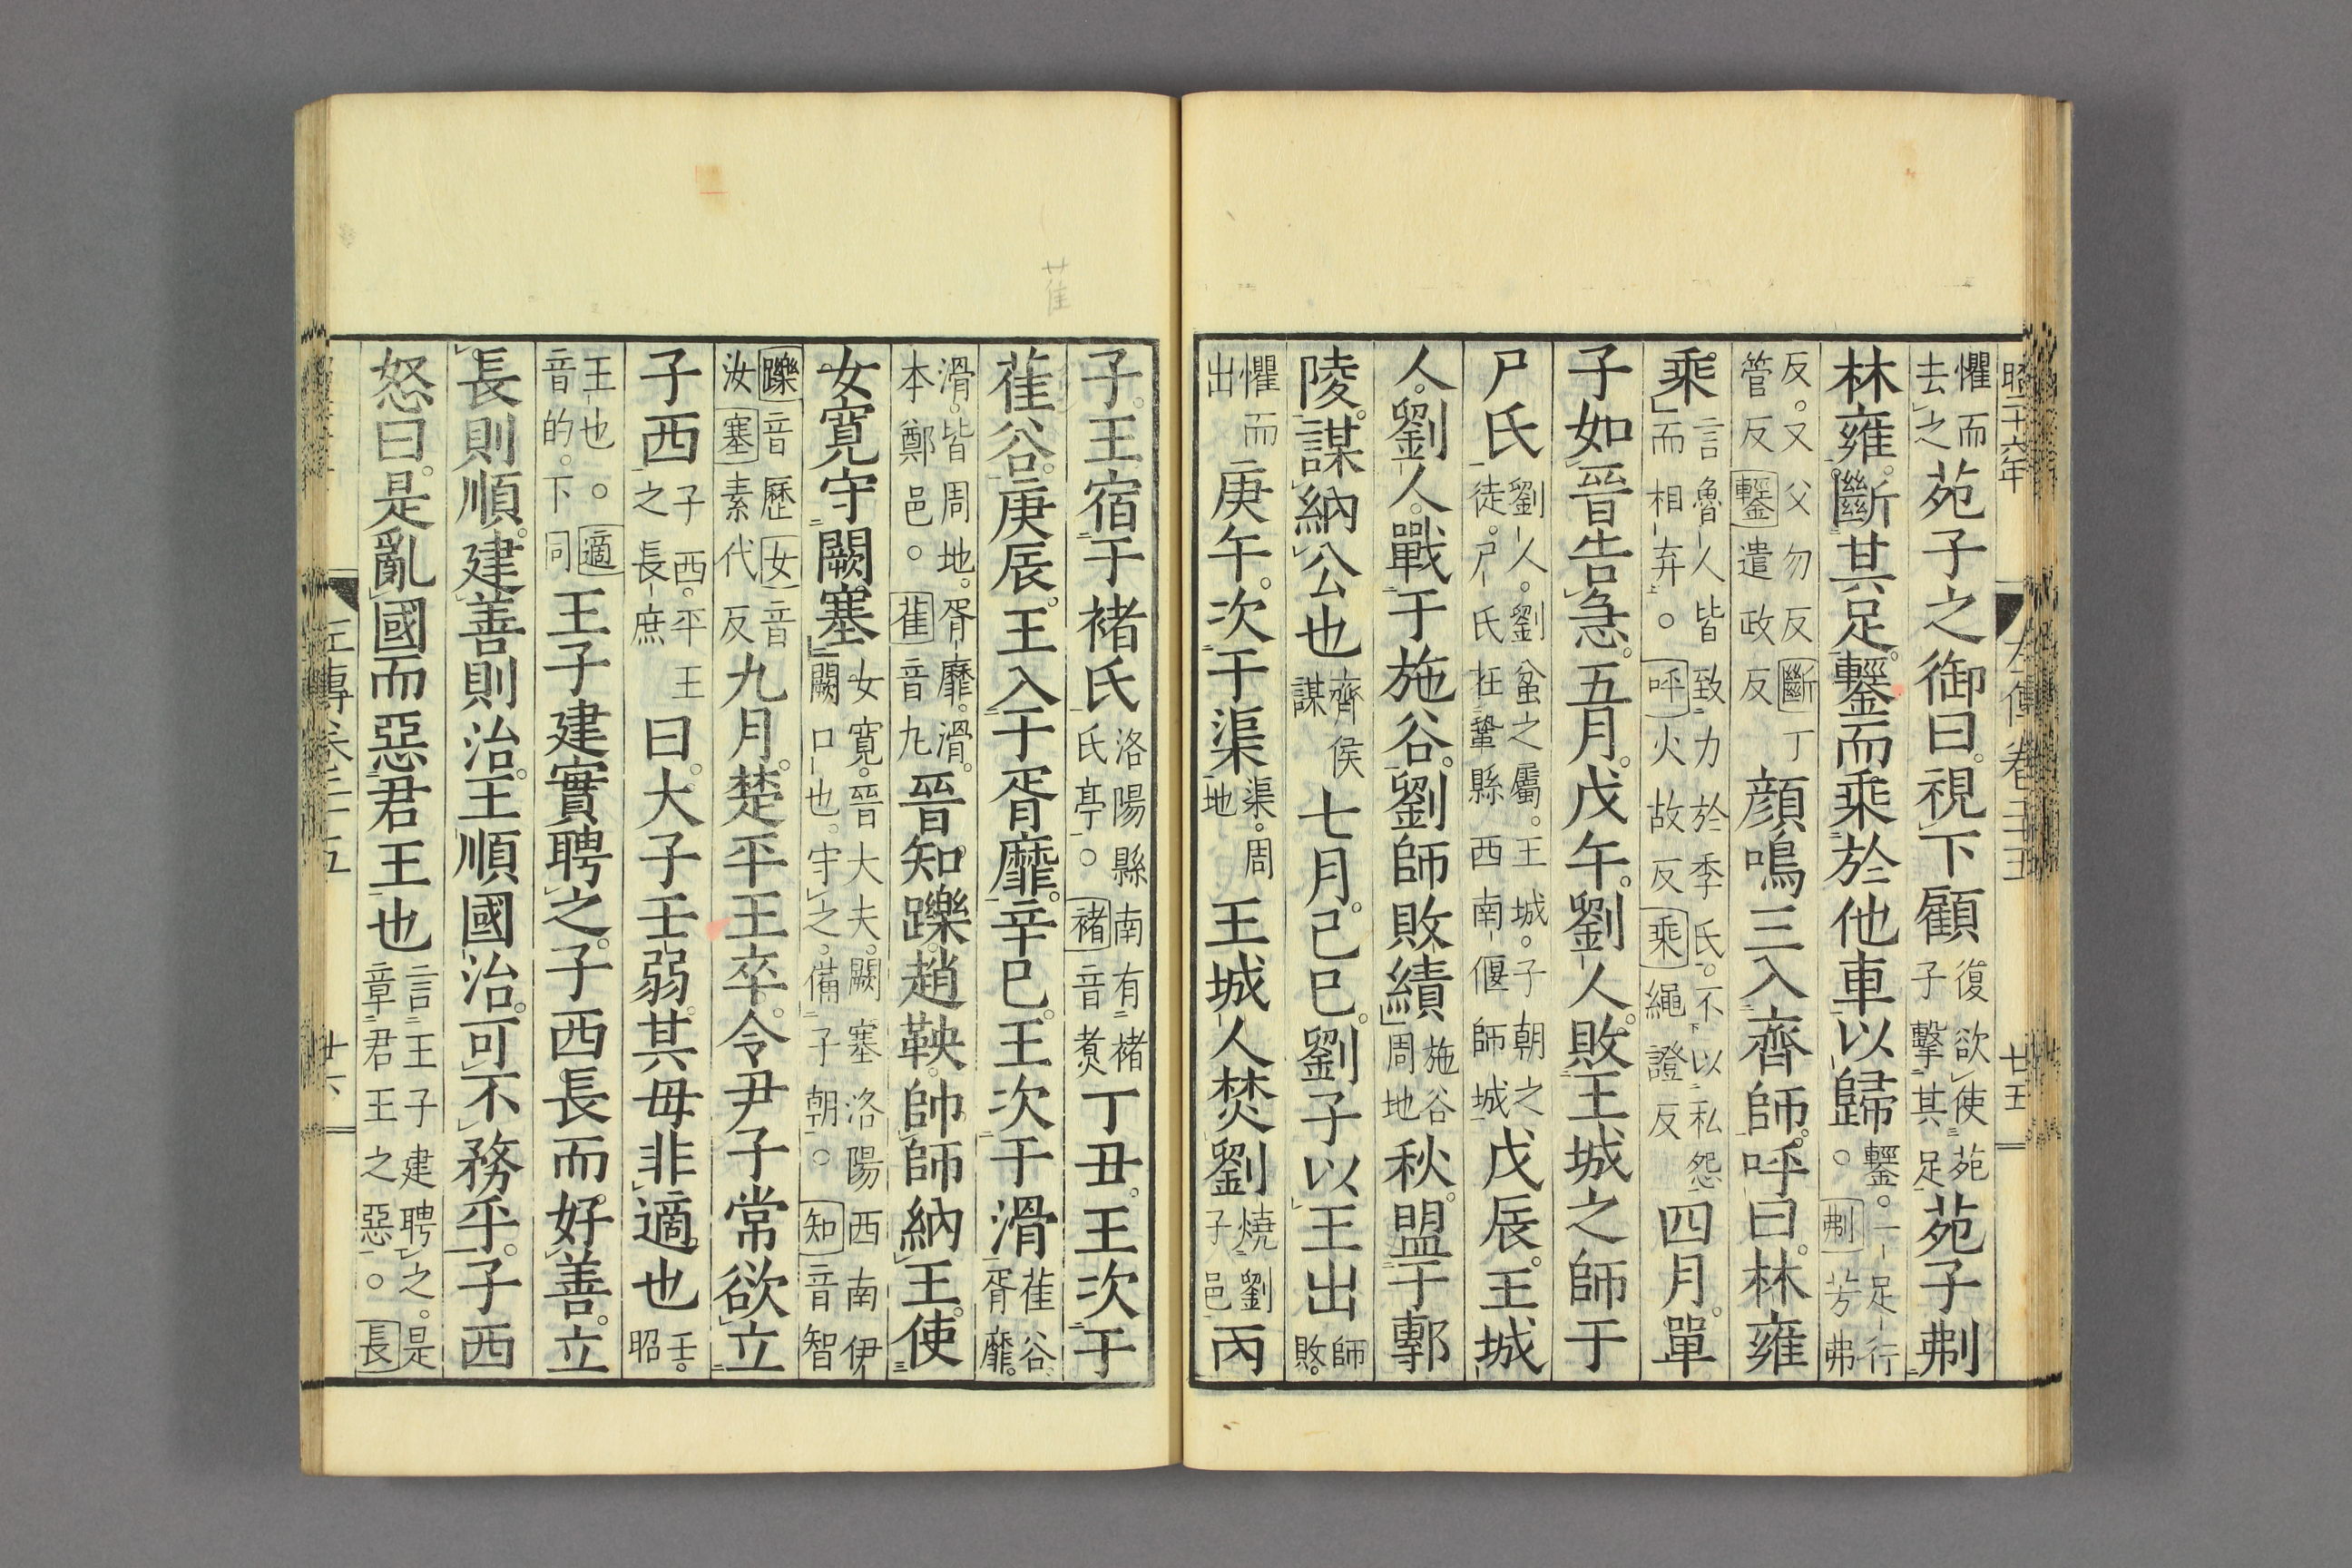 昭二十六年 左傳卷二十五 廿五
懼而去之苑子之御曰。視下顧復欲使苑子擊其足苑子刜
林雍。斷其足。鑋而乘於他車以歸鑋。一足行。○刜芳弗
反。又父勿反斷丁管反鑋遣政反顏鳴三入齊師。呼曰。林雍
乘言魯人皆致力於季氏。不以私怨而相弃。○呼火故反乘繩證反四月。單
子如晉告急。五月。戊午。劉人敗王城之師于
尸氏劉人。劉蚠之屬。王城。子朝之徒。尸氏在鞏縣西南偃師城戊辰。王城
人。劉人。戰于施谷。劉師敗績施谷周地秋。盟于鄟
陵。謀納公也齊侯謀七月。己巳。劉子以王出師敗。
懼而出庚午。次于渠渠。周地王城人焚劉燒劉子邑丙
子。王宿于褚氏洛陽縣南有褚氏亭。○褚音煑丁丑。王次于
萑谷。庚辰。王入于胥靡。辛巳。王次于滑萑谷胥靡。
滑。皆周地。胥靡。滑。本鄭邑。○萑音九晉知躒。趙鞅。帥師納王。使
女寬守闕塞女寬。晉大夫。闕塞洛陽西南伊闕口也。守之。備子朝。○知音智
躒音歷女音汝塞素代反九月。楚平王卒。令尹子常欲立
子西子西。平王之長庶曰。大子壬弱。其母非適也壬。昭
王也。○適音的。下同王子建實聘之。子西長而好善。立
長則順。建善則治。王順國治。可不務乎。子西
怒曰。是亂國而惡君王也言王子建聘之。是章君王之惡。○長
左傳卷二十五 廿六
萑